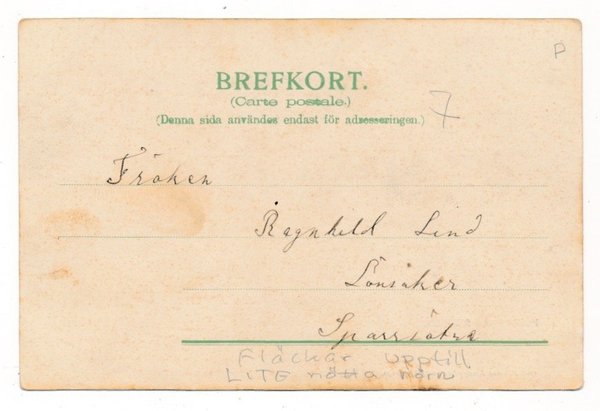 P
BREFKORT.
(Carte postale.)
(Denna sida användes endast för adresseringen.)
7
Fröken
Ragnhild Lind
Lönsåker
Sparrsätra
Fläckar upptill
LITE nötta hörn